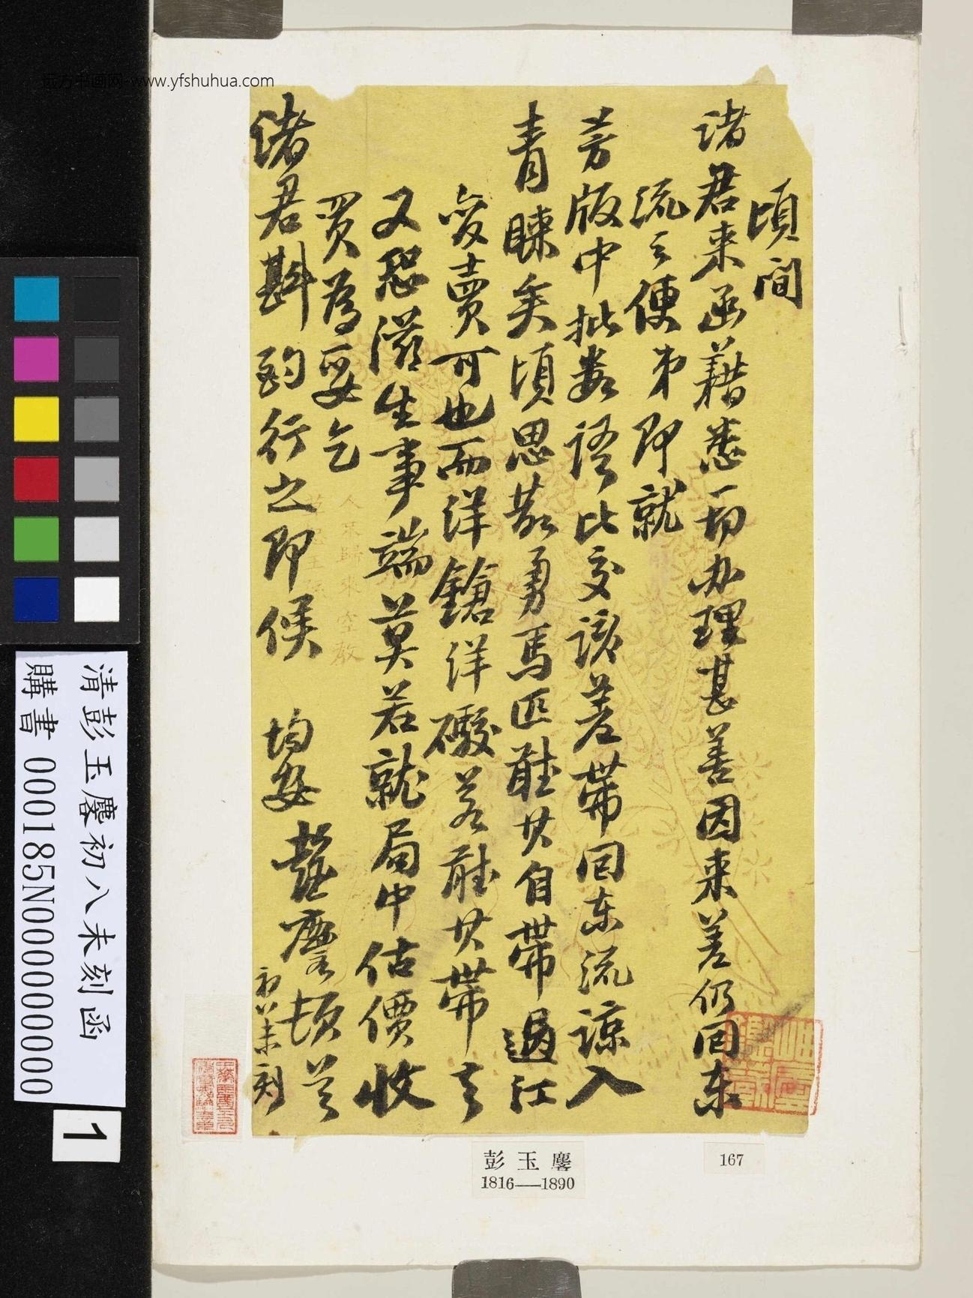 东方书画网 www.yfshuhua.com
頃間
諸君來函藉悉一切办理甚善因來差仍回東
流之便弟即就
芳版中批数語比交該差帶回東流諒入
青睞矣頃思散勇馬匹雖其自帶過江
变賣可也而洋鎗洋礮若雖其帶去
又恐滋生事端莫若就局中估價收
買為妥乞
諸君斟酌行之即候 均安 麐頓首
初八未刻
清彭玉麐初八未刻函
購書 000185N000000000
1
彭玉麐
1816—1890
167